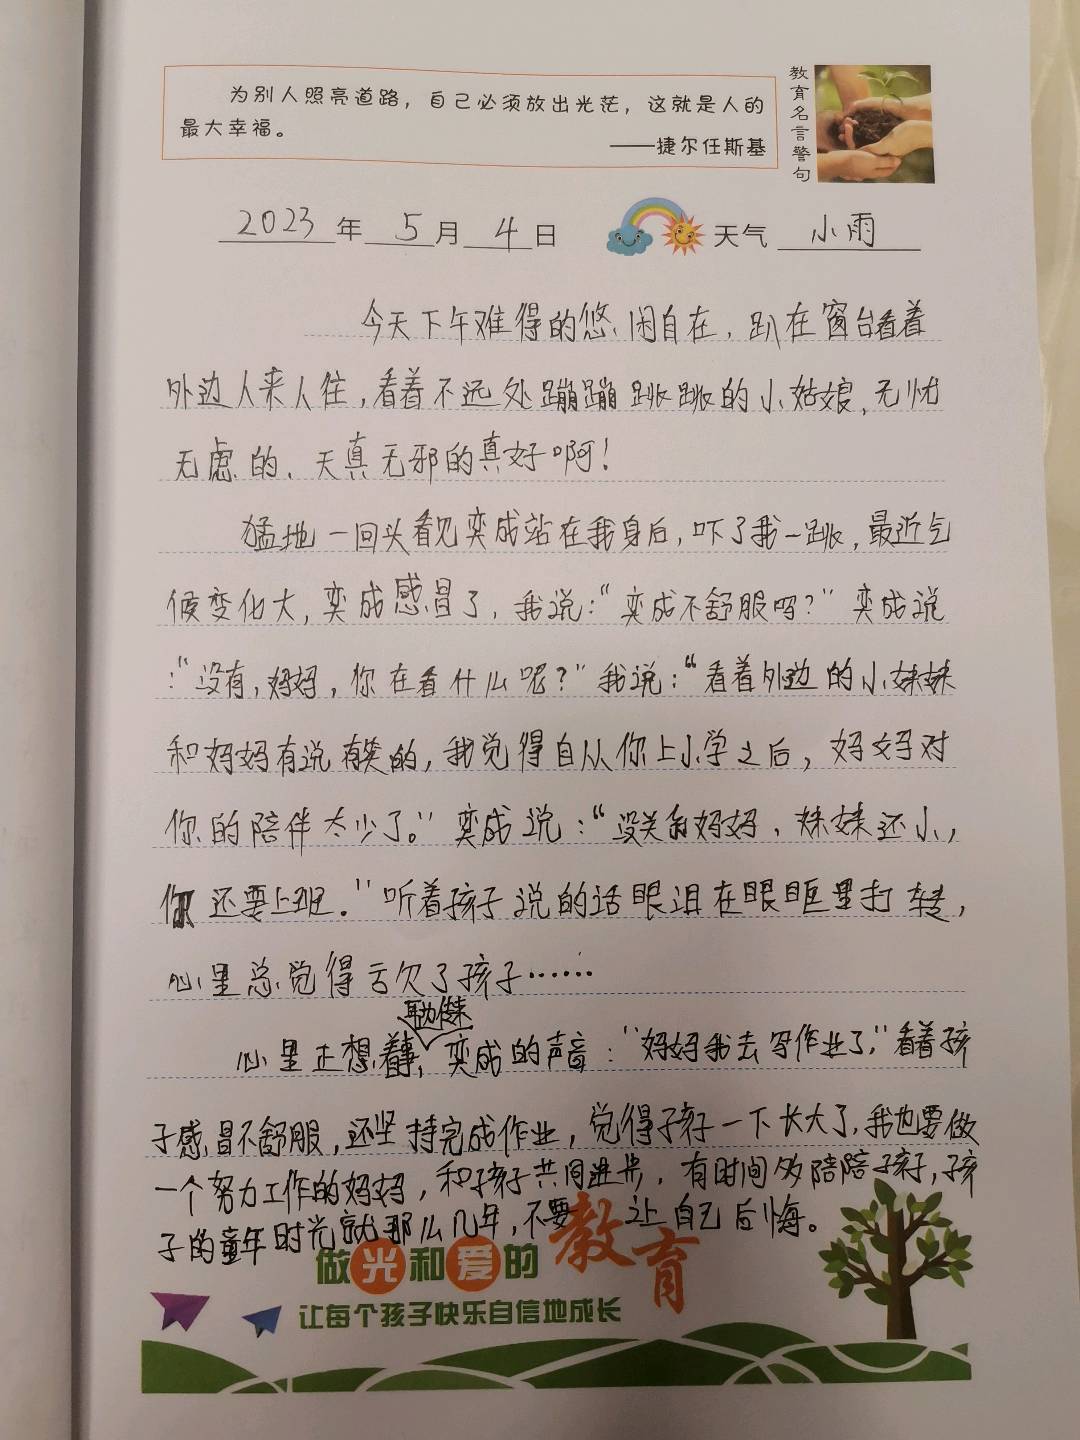 为别人照亮道路，自己必须放出光茫，这就是人的
最大幸福。
——捷尔任斯基
教育名言警句
2023年 5月 4日 天气 小雨
今天下午难得的悠闲自在，趴在窗台看着
外边人来人往，看着不远处蹦蹦跳跳的小姑娘，无忧
无虑的、天真无邪的真好啊！
猛地一回头看见奕成站在我身后，吓了我一跳，最近气
候变化大，奕成感冒了，我说：“奕成不舒服吗？”奕成说
：“没有，妈妈，你在看什么呢？”我说：“看着外边的小妹妹
和妈妈有说有笑的，我觉得自从你上小学之后，妈妈对
你的陪伴太少了。”奕成说：“没关系妈妈，妹妹还小，
你还要上班。”听着孩子说的话眼泪在眼眶里打转，
心里总觉得亏欠了孩子……
心里正想着事，耳边传来奕成的声音：“妈妈我去写作业了，”看着孩
子感冒不舒服，还坚持完成作业，觉得孩子一下长大了，我也要做
一个努力工作的妈妈，和孩子共同进步，有时间多陪陪孩子，孩
子的童年时光就那么几年，不要让自己后悔。
做光和爱的教育
让每个孩子快乐自信地成长